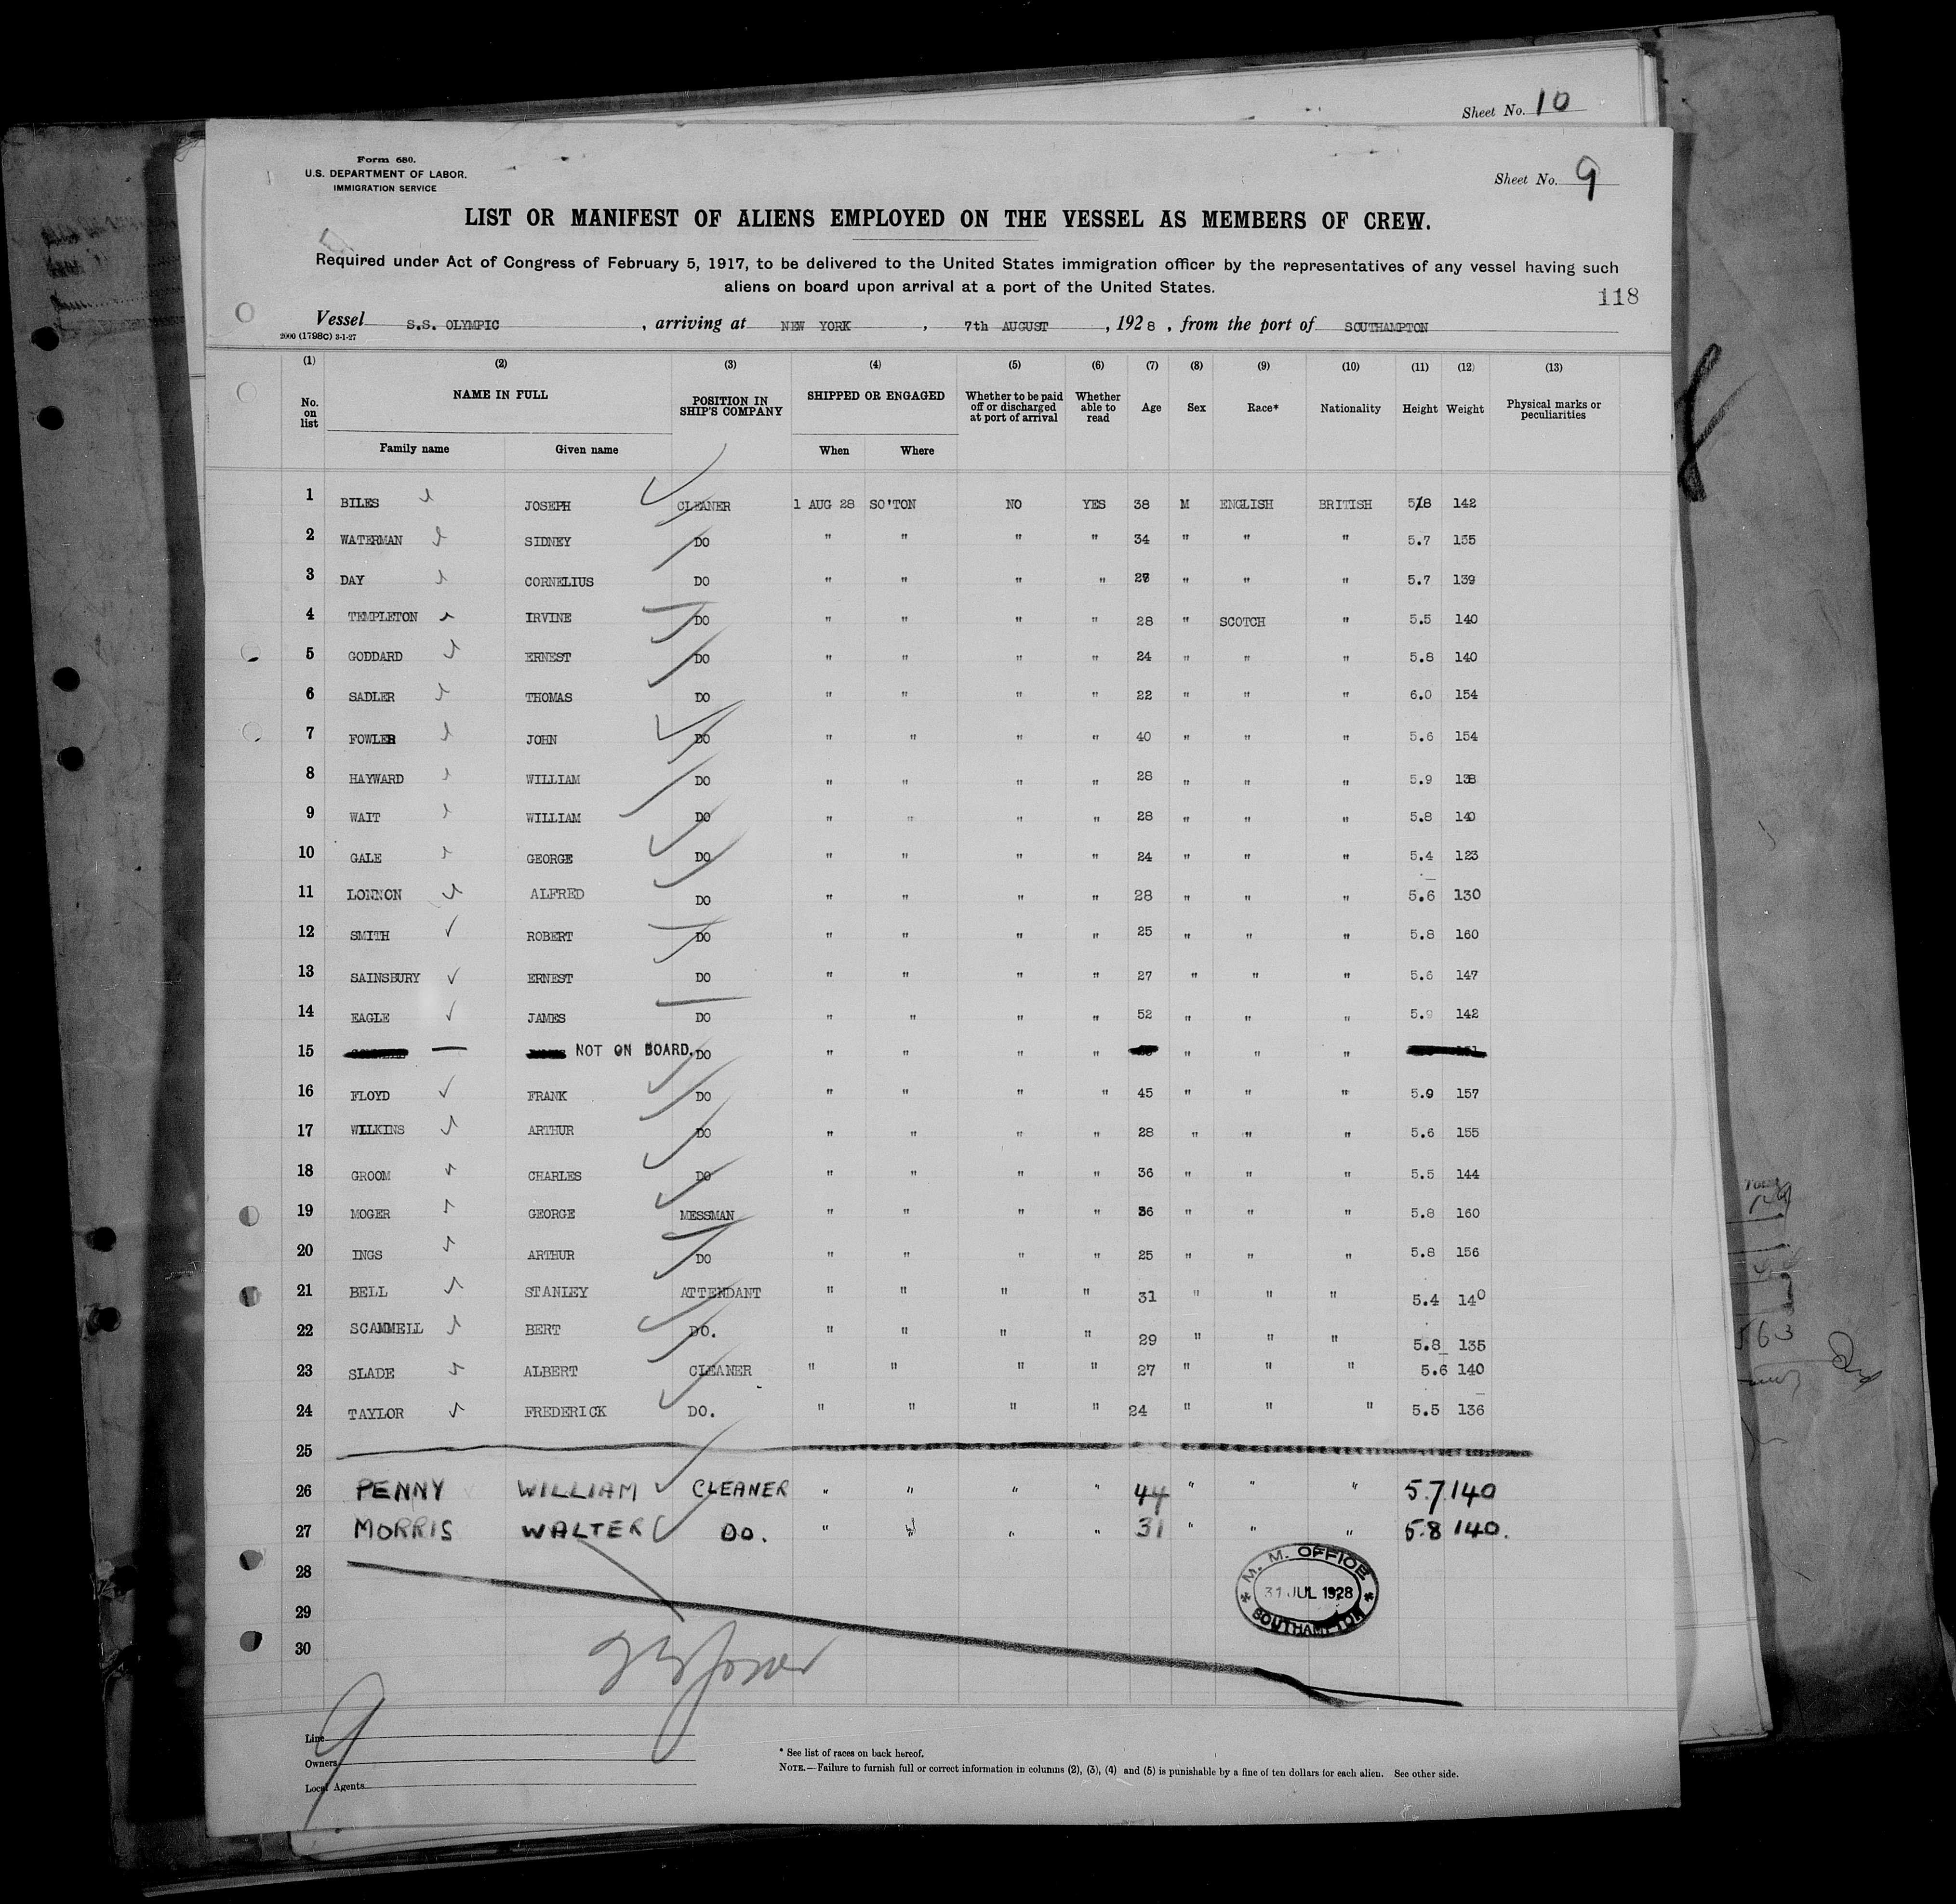 Sheet No. 10
Form 680.
U.S. DEPARTMENT OF LABOR.
IMMIGRATION SERVICE
Sheet No. 9
LIST OR MANIFEST OF ALIENS EMPLOYED ON THE VESSEL AS MEMBERS OF CREW.
Required under Act of Congress of February 5, 1917, to be delivered to the United States immigration officer by the representatives of any vessel having such
aliens on board upon arrival at a port of the United States.
118
Vessel S.S. OLYMPIC , arriving at NEW YORK , 7th AUGUST , 1928 , from the port of SOUTHAMPTON
2000 (1798C) 3-1-27
(1) (2) (3) (4) (5) (6) (7) (8) (9) (10) (11) (12) (13)
No. on list NAME IN FULL POSITION IN SHIP'S COMPANY SHIPPED OR ENGAGED Whether to be paid off or discharged at port of arrival Whether able to read Age Sex Race* Nationality Height Weight Physical marks or peculiarities
Family name Given name When Where
1 BILES JOSEPH CLEANER 1 AUG 28 SO'TON NO YES 38 M ENGLISH BRITISH 5.8 142
2 WATERMAN SIDNEY DO " " " " 34 " " " 5.7 155
3 DAY CORNELIUS DO " " " " " " " 5.7 139
4 TEMPLETON IRVINE DO " " " " 28 " SCOTCH " 5.5 140
5 GODDARD ERNEST DO " " " " 24 " " " 5.8 140
6 SADLER THOMAS DO " " " " 22 " " " 6.0 154
7 FOWLER JOHN DO " " " " 40 " " " 5.6 154
8 HAYWARD WILLIAM DO " " " " 28 " " " 5.9 138
9 WAIT WILLIAM DO " " " " 28 " " " 5.8 140
10 GALE GEORGE DO " " " " 24 " " " 5.4 123
11 LONNON ALFRED DO " " " " 28 " " " 5.6 130
12 SMITH ROBERT DO " " " " 25 " " " 5.8 160
13 SAINSBURY ERNEST DO " " " " 27 " " " 5.6 147
14 EAGLE JAMES DO " " " " 52 " " " 5.9 142
15 NOT ON BOARD. DO " " " " " " "
16 FLOYD FRANK DO " " " " 45 " " " 5.9 157
17 WILKINS ARTHUR DO " " " " 28 " " " 5.6 155
18 GROOM CHARLES DO " " " " 36 " " " 5.5 144
19 MOGER GEORGE MESSMAN " " " " 36 " " " 5.8 160
20 INGS ARTHUR DO " " " " 25 " " " 5.8 156
21 BELL STANLEY ATTENDANT " " " " 31 " " " 5.4 140
22 SCAMMELL BERT DO. " " " " 29 " " " 5.8 135
23 SLADE ALBERT CLEANER " " " " 27 " " " 5.6 140
24 TAYLOR FREDERICK DO. " " " " 24 " " " 5.5 136
25
26 PENNY WILLIAM CLEANER " " " " 44 " " " 5.7 140
27 MORRIS WALTER DO. " " " " 31 " " " 5.8 140.
28
29
30
M. M. OFFICE
31 JUL 1928
SOUTHAMPTON
9
Line
Owners
Local Agents
* See list of races on back hereof.
NOTE.—Failure to furnish full or correct information in columns (2), (3), (4) and (5) is punishable by a fine of ten dollars for each alien. See other side.